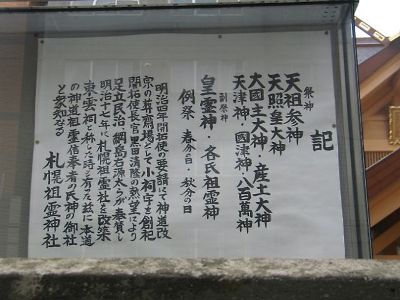 記
祭神
天祖参神
天照皇大神
大國主大神・産土大神
天津神・國津神・八百萬神
副祭神
皇霊神・各氏祖霊神
例祭 春分の日・秋分の日
明治四年開拓使の要請にて神道改
宗の葬祭場として小祠宇を創祀
開拓使長官黒田清隆の熱望により
足立民治 網島石源太らが奉賛し
明治十七年に札幌祖霊社を改築
東雲祠と称した時も有った玆に本道
の神道祖霊信奉者の氏神の御社
と家知なる
札幌祖霊神社